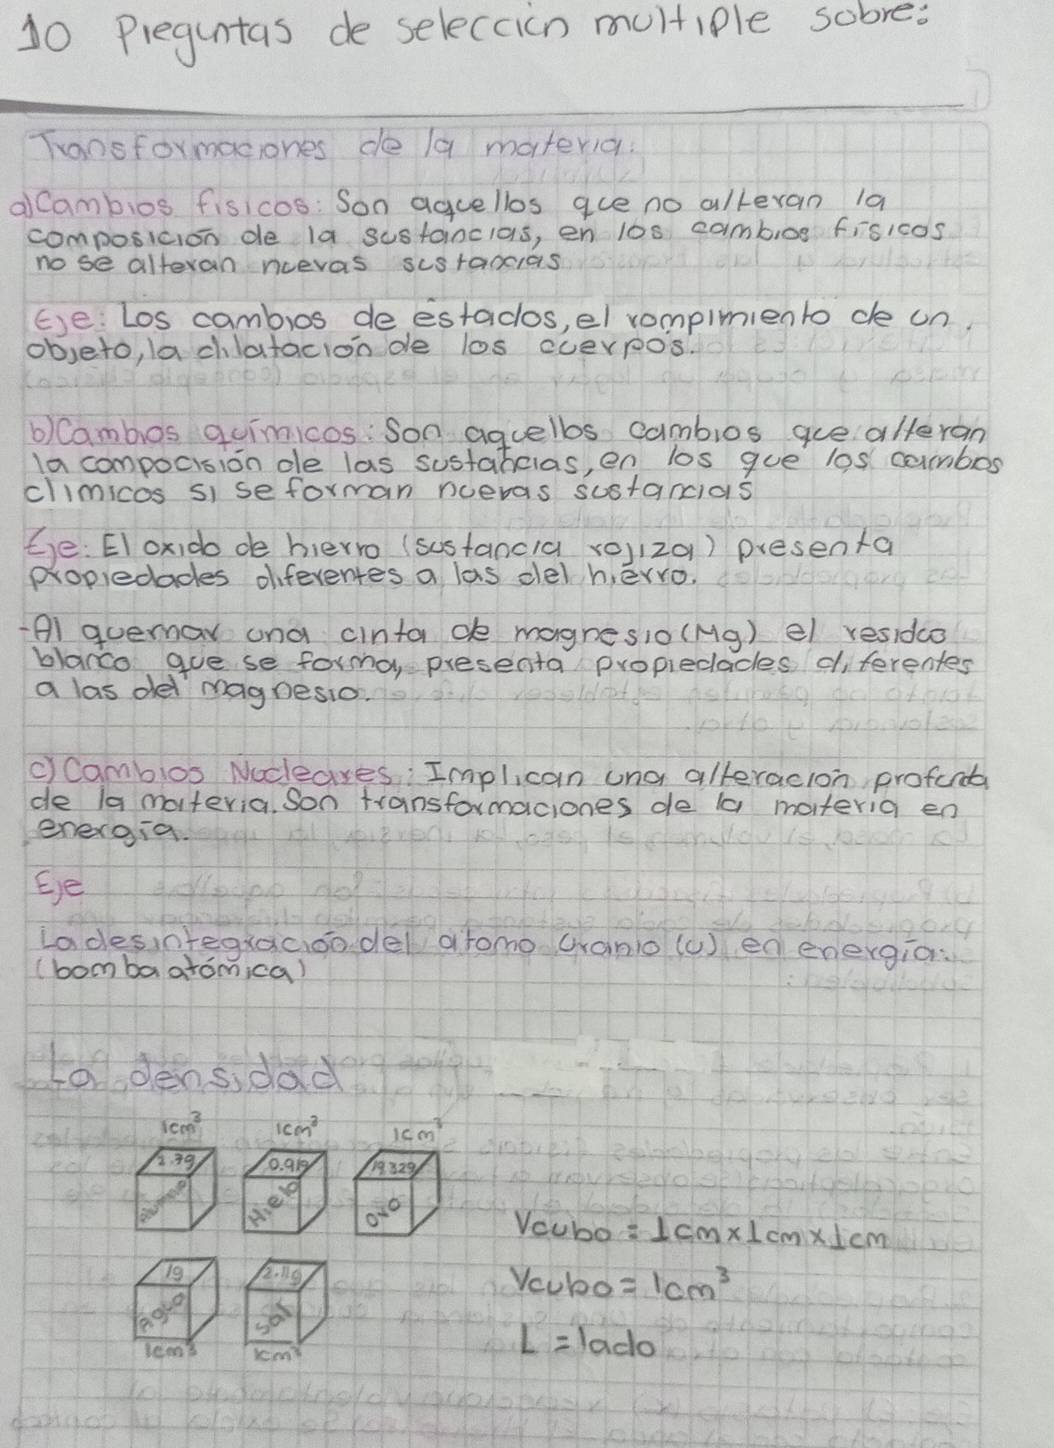 10 Preguntas de selección multiple sobre:
Transformaciones de la materia:
a) Cambios fisicos: Son aquellos que no alteran la
composición de la sustancias, en los cambios físicos
no se alteran nuevas sustancias
Eje: Los cambios de estados, el rompimiento de un
objeto, la dilatación de los cuerpos.
b) Cambios químicos: Son aquellos cambios que alteran
la compocisión de las sustancias, en los que los cambios
clímicos si se forman nuevas sustancias
Eje: El oxido de hierro (sustancia rojiza) presenta
propiedades diferentes a las del hierro.
-Al quemar una cinta de magnesio (Mg) el residuo
blanco que se forma, presenta propiedades diferentes
a las del magnesio.
c) Cambios Nucleares: Implican una alteración profunda
de la materia. Son transformaciones de la materia en
energía.
Eje
La desintegración del atomo Uranio (U) en energía.
(bomba atómica)
La densidad
1cm³ 1cm³ 1cm³
2.7g 0.91g 19.32g
Aluminio Hielo Oro
Vcubo = 1cm x 1cm x 1cm
1g 2.11g
Vcubo = 1cm³
Agua Sal
1cm³ 1cm³
L = lado